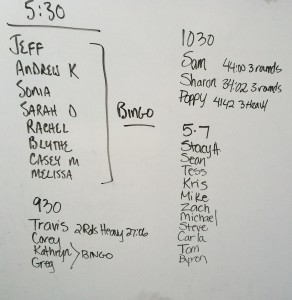 5:30
JEFF
ANDREW K
SONIA
SARAH D
RACHEL
BLYTHE
CASEY M
MELISSA
BINGO
930
Travis 2 Rds Heavy 27:06
Corey
Kathryn
Greg
BINGO
1030
Sam 44:00 3 rounds
Sharon 34:02 3 rounds
Poppy 41:42 3 Heavy
5-7
Stacy A
Sean
Tess
Kris
Mike
Zach
Michael
Steve
Carla
Tom
Byron